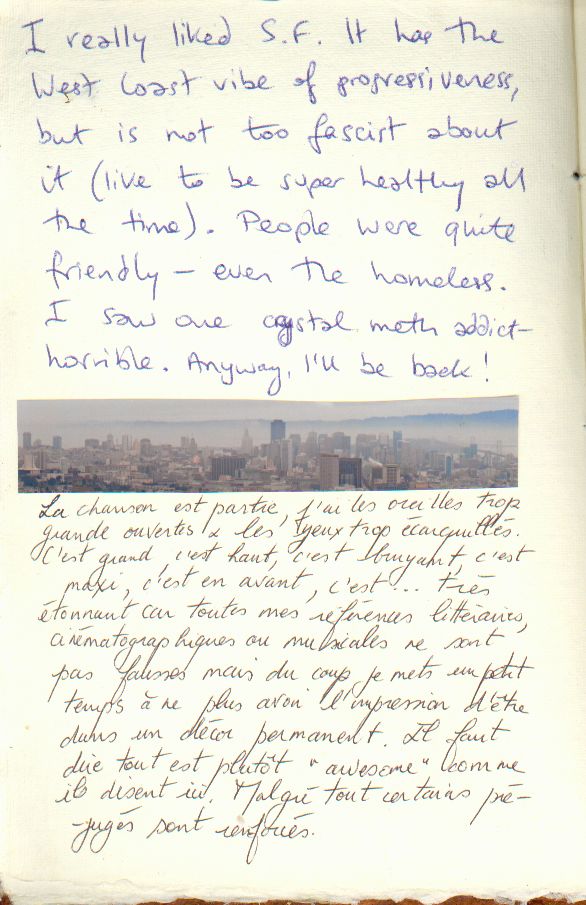 I really liked S.F. It has the
West Coast vibe of progressiveness,
but is not too fascist about
it (live to be super healthy all
the time). People were quite
friendly – even the homeless.
I saw one crystal meth addict –
horrible. Anyway, I'll be back!
La chanson est partie, j'ai les oreilles trop
grande ouvertes & les yeux trop écarquillés.
C'est grand, c'est haut, c'est bruyant, c'est
maxi, c'est en avant, c'est... très
étonnant car toutes mes références littéraires,
cinématographiques ou musicales ne sont
pas fausses mais du coup je mets un petit
temps à ne plus avoir l'impression d'être
dans un décor permanent. Il faut
dire tout est plutôt "awesome" comme
ils disent ici. Malgré tout certains pré-
-jugés sont renforcés.